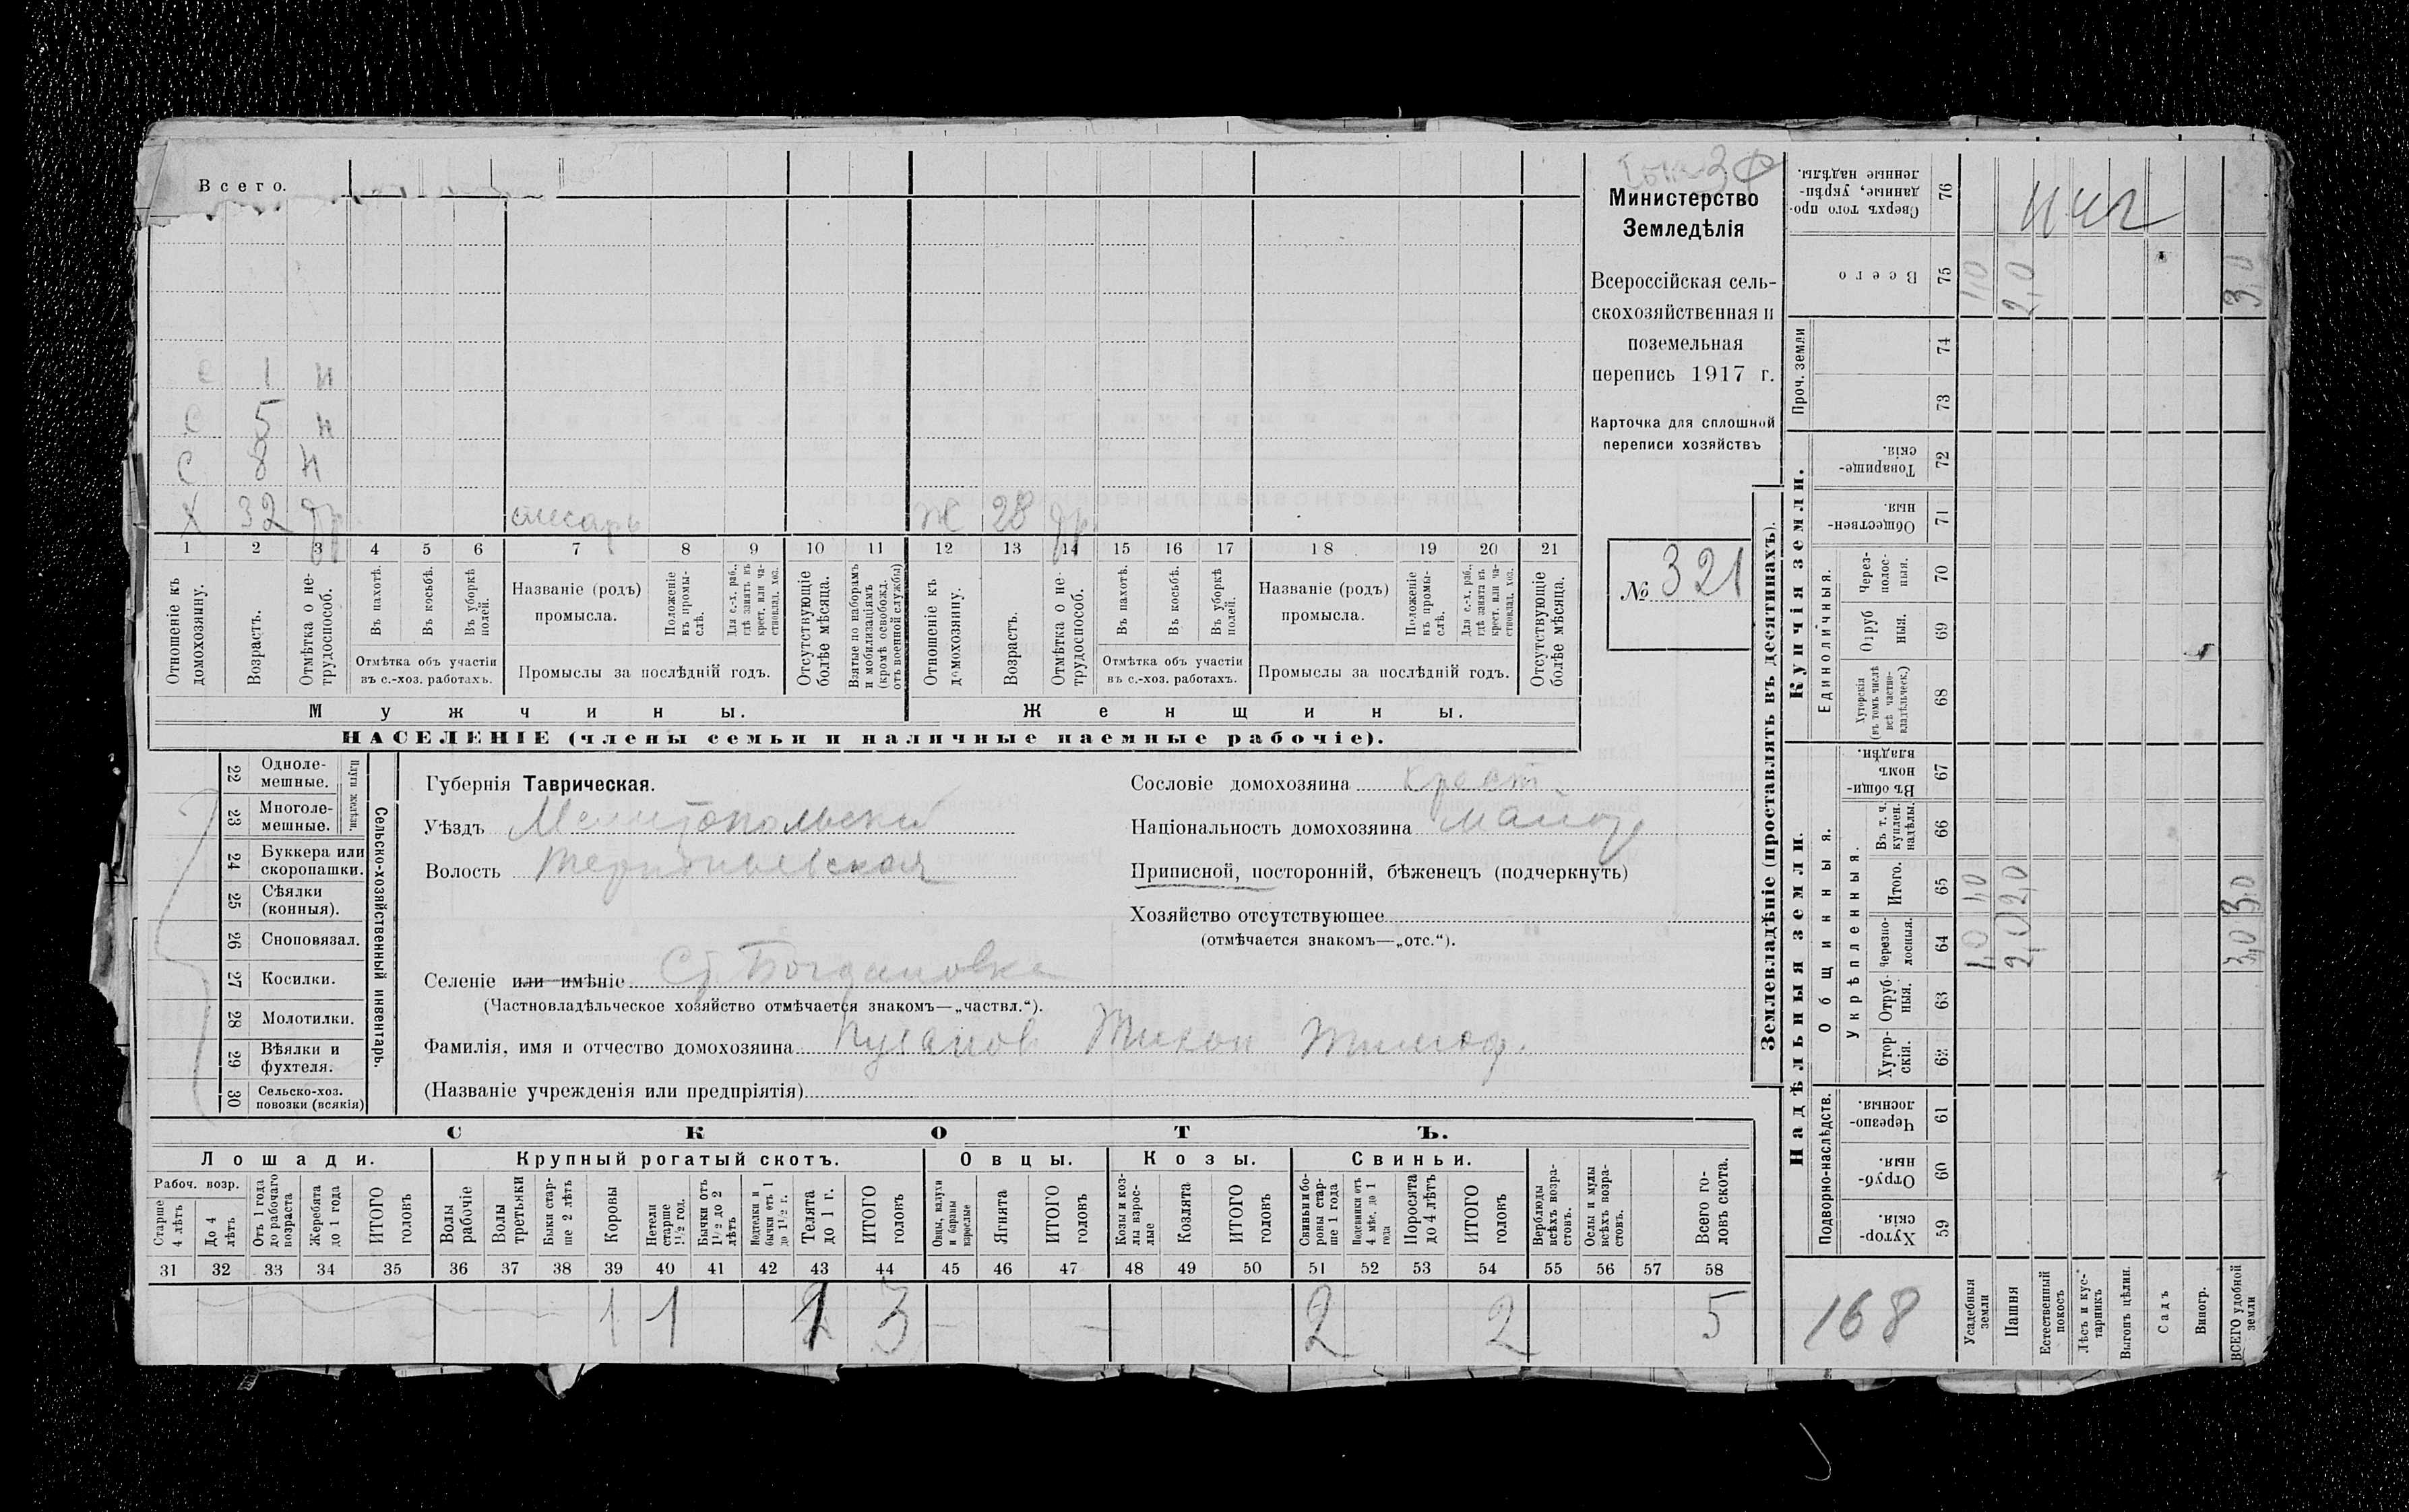 Всего.
с 1 н
с 5 н
с 8 н
х 32 др слесарь ж 28 др
1 2 3 4 5 6 7 8 9 10 11 12 13 14 15 16 17 18 19 20 21
Отношеніе къ домохозяину.
Возрастъ.
Отмѣтка о нетрудоспособ.
Въ пахотѣ.
Въ косьбѣ.
Въ уборкѣ полей.
Отмѣтка объ участіи
въ с.-хоз. работахъ.
Названіе (родъ)
промысла.
Положеніе въ промыслѣ.
Для с.-х. раб., гдѣ занятъ въ крест. или частновлад. хоз.
Промыслы за послѣдній годъ.
Отсутствующіе болѣе мѣсяца.
Взятые по наборамъ и мобилизаціямъ (кромѣ освобожд. отъ военной службы)
Отношеніе къ домохозяину.
Возрастъ.
Отмѣтка о нетрудоспособ.
Въ пахотѣ.
Въ косьбѣ.
Въ уборкѣ полей.
Отмѣтка объ участіи
въ с.-хоз. работахъ.
Названіе (родъ)
промысла.
Положеніе въ промыслѣ.
Для с.-х. раб., гдѣ занята въ крест. или частновлад. хоз.
Промыслы за послѣдній годъ.
Отсутствующіе болѣе мѣсяца.
Мужчины.
Женщины.
НАСЕЛЕНІЕ (члены семьи и наличные наемные рабочіе).
Министерство
Земледѣлія
Всероссійская сель-
скохозяйственная и
поземельная
перепись 1917 г.
Карточка для сплошной
переписи хозяйствъ
№ 321
22 Одноле-
мешные.
23 Многоле-
мешные.
Плуги желѣзн.
24 Буккера или
скоропашки.
25 Сѣялки
(конныя).
26 Сноповязал.
27 Косилки.
28 Молотилки.
29 Вѣялки и
фухтеля.
30 Сельско-хоз.
повозки (всякія)
Сельско-хозяйственный инвентарь.
Губернія Таврическая.
Уѣздъ Мелитопольский
Волость Терпеньевская
Селеніе или имѣніе Ст. Богдановка
(Частновладѣльческое хозяйство отмѣчается знакомъ—„частвл.“).
Фамилія, имя и отчество домохозяина Пузанов Тихон Тимоф.
(Названіе учрежденія или предпріятія)
Сословіе домохозяина крест
Національность домохозяина малор
Приписной, посторонній, бѣженецъ (подчеркнуть)
Хозяйство отсутствующее
(отмѣчается знакомъ—„отс.“).
СКОТЪ.
Лошади. Крупный рогатый скотъ. Овцы. Козы. Свиньи.
Рабоч. возр.
Старше 4 лѣтъ
До 4 лѣтъ
Отъ 1 года до рабочаго возраста
Жеребята до 1 года
ИТОГО головъ
Волы рабочіе
Волы третьяки
Быки старше 2 лѣтъ
Коровы
Нетели старше 1½ год.
Бычки отъ 1½ до 2 лѣтъ
Подтелки и бычки отъ 1 до 1½ г.
Телята до 1 г.
ИТОГО головъ
Овцы, валухи и бараны взрослые
Ягнята
ИТОГО головъ
Козы и козлы взрослые
Козлята
ИТОГО головъ
Свиньи и боровы старше 1 года
Подсвинки отъ 4 мѣс. до 1 года
Поросята до 4 лѣтъ
ИТОГО головъ
Верблюды всѣхъ возрастовъ.
Ослы и мулы всѣхъ возрастовъ.
Всего головъ скота.
31 32 33 34 35 36 37 38 39 40 41 42 43 44 45 46 47 48 49 50 51 52 53 54 55 56 57 58
1 1 1 3 – – 2 2 5
Землевладѣніе (проставлять въ десятинахъ).
Сверхъ того проданные, укрѣпленные надѣлы.
76
Всего
75 1,0 2,0 3,0
Проч. земли
74
73
Купчія земли.
Товарищескія.
72
Общественныя.
71
Единоличныя.
Черезполосныя.
70
Отрубныя.
69
Хуторскія (въ томъ числѣ всѣ частновладѣльческ.)
68
Надѣльныя земли.
Общинныя.
Въ общинномъ владѣн.
67
Укрѣпленныя.
Въ т. ч. куплен. надѣлы.
66
Итого.
65 1,0 2,0 3,0
Черезполосныя.
64 1,0 2,0 3,0
Отрубныя.
63
Хуторскія.
62
Подворно-наслѣдств.
Черезполосныя.
61
Отрубныя.
60
Хуторскія.
59
168
Усадебныя земли
Пашня
Естественный покосъ
Лѣсъ и кустарникъ
Выгонъ цѣлин.
Садъ
Виногр.
ВСЕГО удобной земли